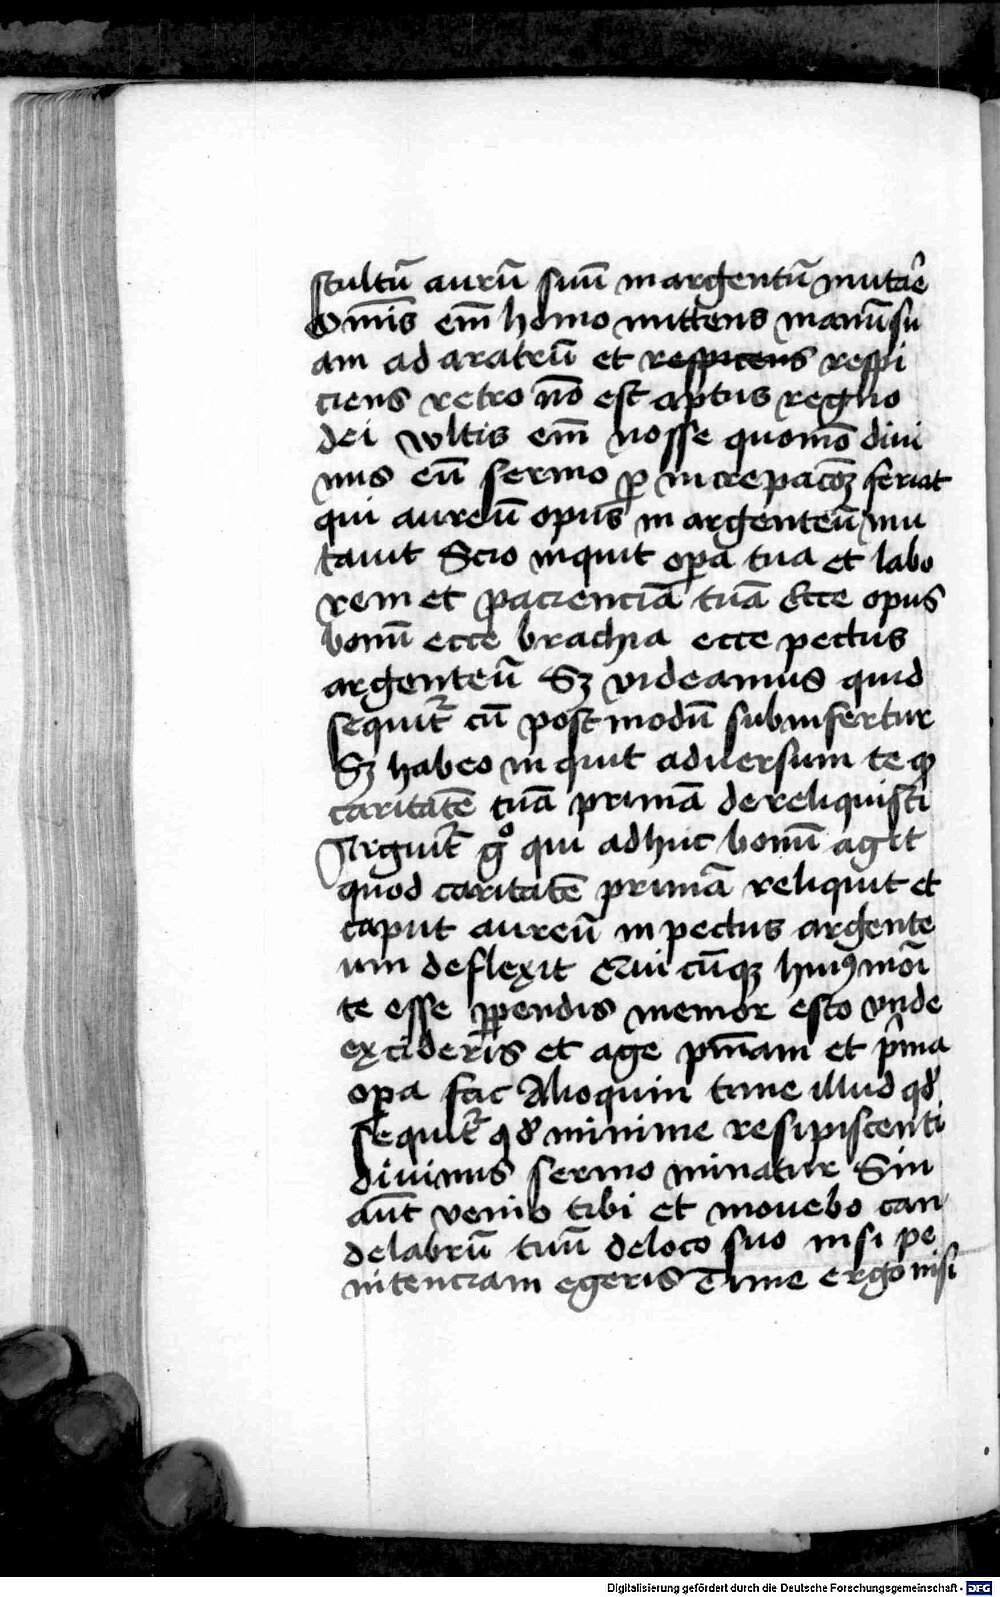 stultū aurū suū in argentū mutar̄e
Om̄is em̄ homo mittens manū su
am ad aratrū et respiciens respi
ciens retro nō est aptus regno
dei wltis em̄ nosse quomō divi
nus eū sermo ꝑ increpacōꝫ feriat
qui aureū opus in argenteū mu
tauit Scio inquit oꝑa tua et labo
rem et pacienciā tuā Ecce opus
bonū ecce brachia ecce pectus
argenteū Sꝫ videamus quid
sequit᷑ cū postmodū subinfertur
Sꝫ habeo inquit aduersum te qꝫ
caritatē tuā primā dereliquisti
Arguit᷑ gͦ qui adhuc bonū agit
quod caritatē primā reliquit et
caput aureū in pectus argente
um deflexit Qui cūqꝫ huiꝰmōi
te esse ꝑpendis memor esto vnde
excideris et age pn̄iam et pⁱma
oꝑa fac Alioquin time illud qđ
sequit᷑ qđ minime resipiscenti
diuinus sermo minatur Sin
aūt venio tibi et mouebo can
delabrū tuū deloco suo nisi pe
nitenciam egeris Time ergo nisi
Digitalisierung gefördert durch die Deutsche Forschungsgemeinschaft - DFG